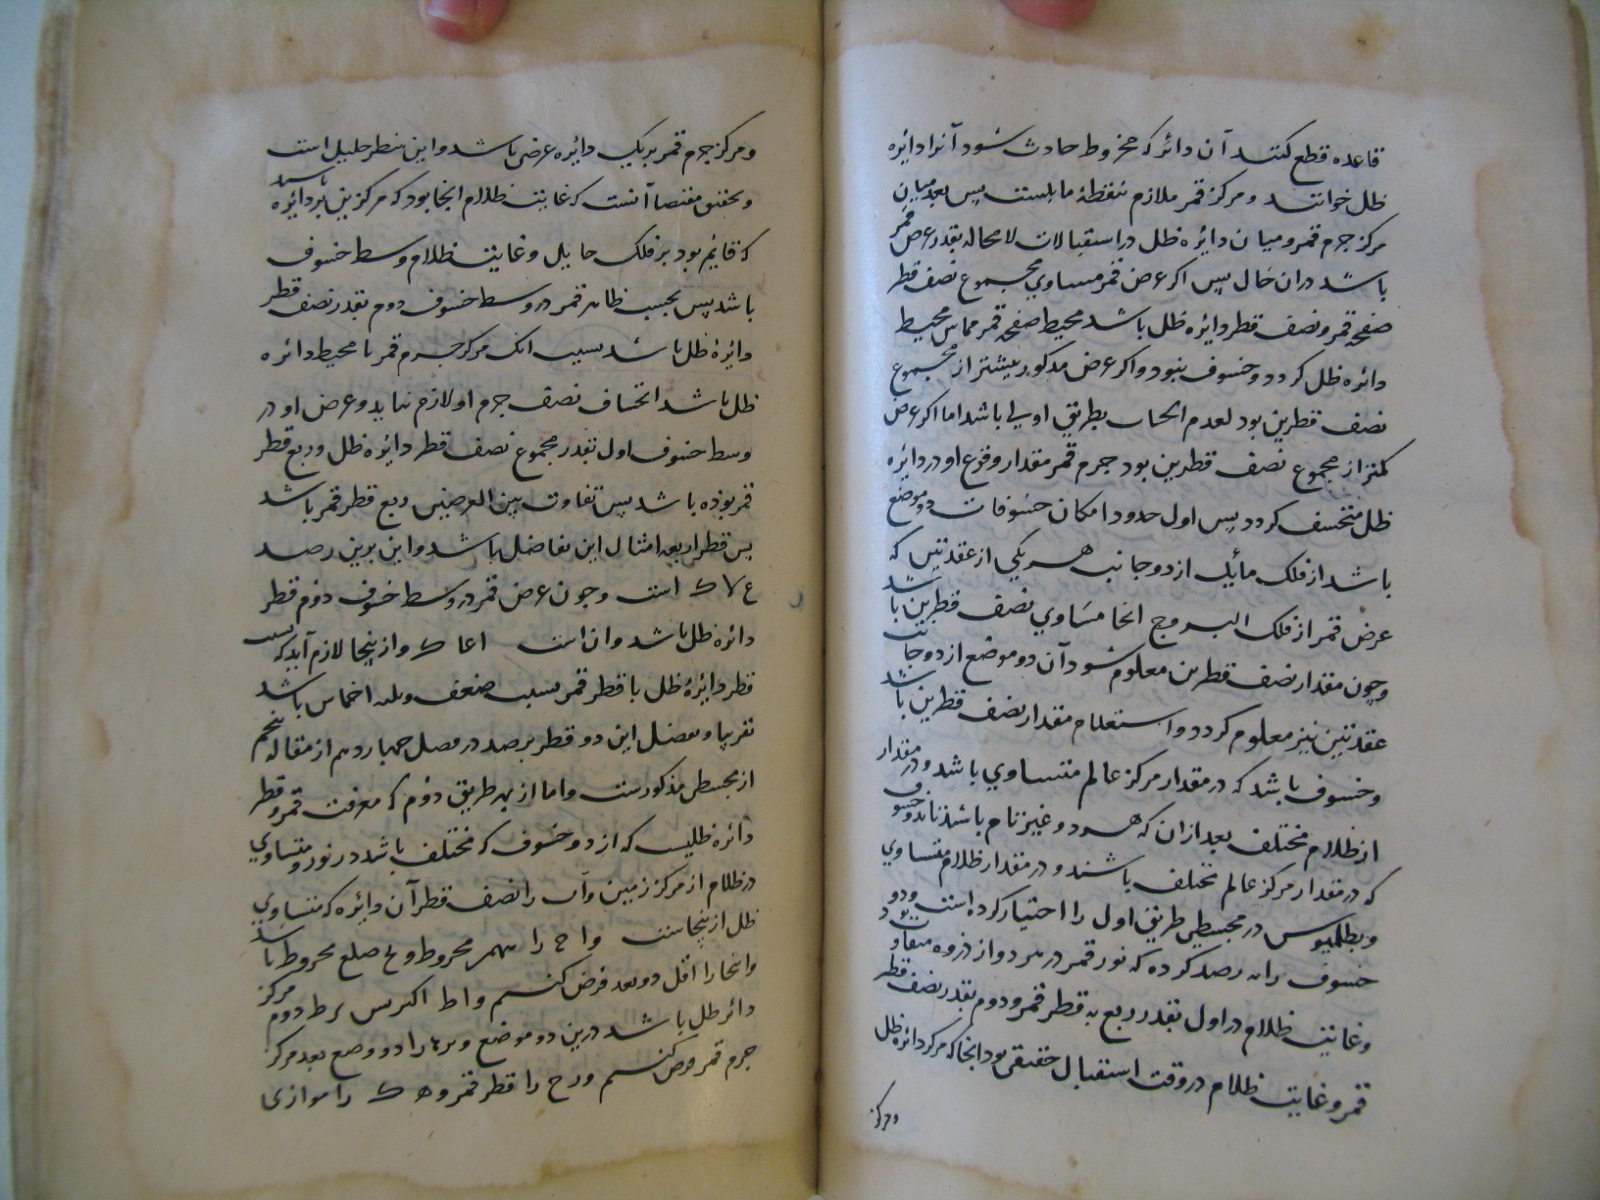 قاعده قطع کنند آن دائر که مخروط حادث شود آنرا دایره
ظل خوانند و مرکز قمر ملازم نقطهٔ مایلست پس بعد میان
مرکز جرم قمر و میان دایره ظل در استقبالات لا محاله بقدر عرض قمر
باشد دران حال پس اکر عرض قمر مساوي مجموع نصف قطر
صفحه قمر و نصف قطر دایره ظل باشد محیط صفحه قمر مماس محیط
دائره ظل کردد و خسوف نبود و اکر عرض مذکور بیشتر از مجموع
نصف قطرین بود لعدم انخساف بطریق اولی باشد اما اکر عرض
کمتر از مجموع نصف قطرین بود جرم قمر مقدار وقوع او در دائره
ظل منخسف کردد پس اول حدود امکان خسوفات دو موضع
باشد از فلک مایل از دو جانب هر یکي از عقدتین که
عرض قمر از فلک البروج انجا مساوي نصف قطرین باشد
و چون مقدار نصف قطرین معلوم شود آن دو موضع از دو جانب
عقدتین نیز معلوم کردد و استعلام مقدار نصف قطرین باشد
و خسوف باشد که در مقدار مرکز عالم متساوي باشد و در مقدار
از ظلام مختلف بعد ازان که هر دو غیر تام باشند تا دو خسوف
که در مقدار مرکز عالم مختلف باشند و در مقدار ظلام متساوي
و بطلمیوس در مجسطي طریق اول را اختیار کرده است و دو
خسوف را رصد کرده که نور قمر در هر دو از ذروه متفاوت بود
و غایت ظلام در اول بقدر ربع قطر قمر و دوم بقدر نصف قطر
قمر و غایت ظلام در وقت استقبال حقیقی بود انجا که مرکز دائره ظل
و مرکز
و مرکز جرم قمر بر یک دایره عرض باشد و این نظر جلیل است
و تحقیق مقتضا آنست که غایت ظلام انجا بود که مرکزین بر دائره باشد
که قایم بود بر فلک مایل و غایت ظلام وسط خسوف
باشد پس بحسب ظاهر قمر در وسط خسوف دوم بقدر نصف قطر
دایرهٔ ظل باشد بسبب انک مرکز جرم قمر تا محیط دائره
ظل باشد انخساف نصف جرم او لازم نیاید و عرض او در
وسط خسوف اول بقدر مجموع نصف قطر دایره ظل و ربع قطر
قمر بوده باشد پس تفاوت بین العرضین ربع قطر قمر باشد
پس قطر اربعه امثال این تفاضل باشد و این برین رصد
است و چون عرض قمر در وسط خسوف دوم قطر
دائره ظل باشد و ان است و ازینجا لازم آید که نسبت
قطر دایرهٔ ظل با قطر قمر نسبت ضعف و ثلثه اخماس باشد
تقریبا و تفضل این دو قطر بر صد در فصل چهاردهم از مقاله پنجم
از مجسطي مذکورست و اما از طریق دوم که معرفت قمر و قطر
دائره ظلیست که از دو خسوف که مختلف باشد در نور و متساوي
در ظلام از مرکز زمین و اب را نصف قطر آن دایره که متساوي
ظل ازینجاست و اح را سهم مخروط و ضلع مخروط باشد
و انجا را اقل دو بعد فرض کنیم و اط اکبر پس بر ط دوم مرکز
دائر ظل باشد درین دو موضع و را دو وضع بعد مرکز
جرم قمر فرض کنیم و رح را قطر قمر و را موازی